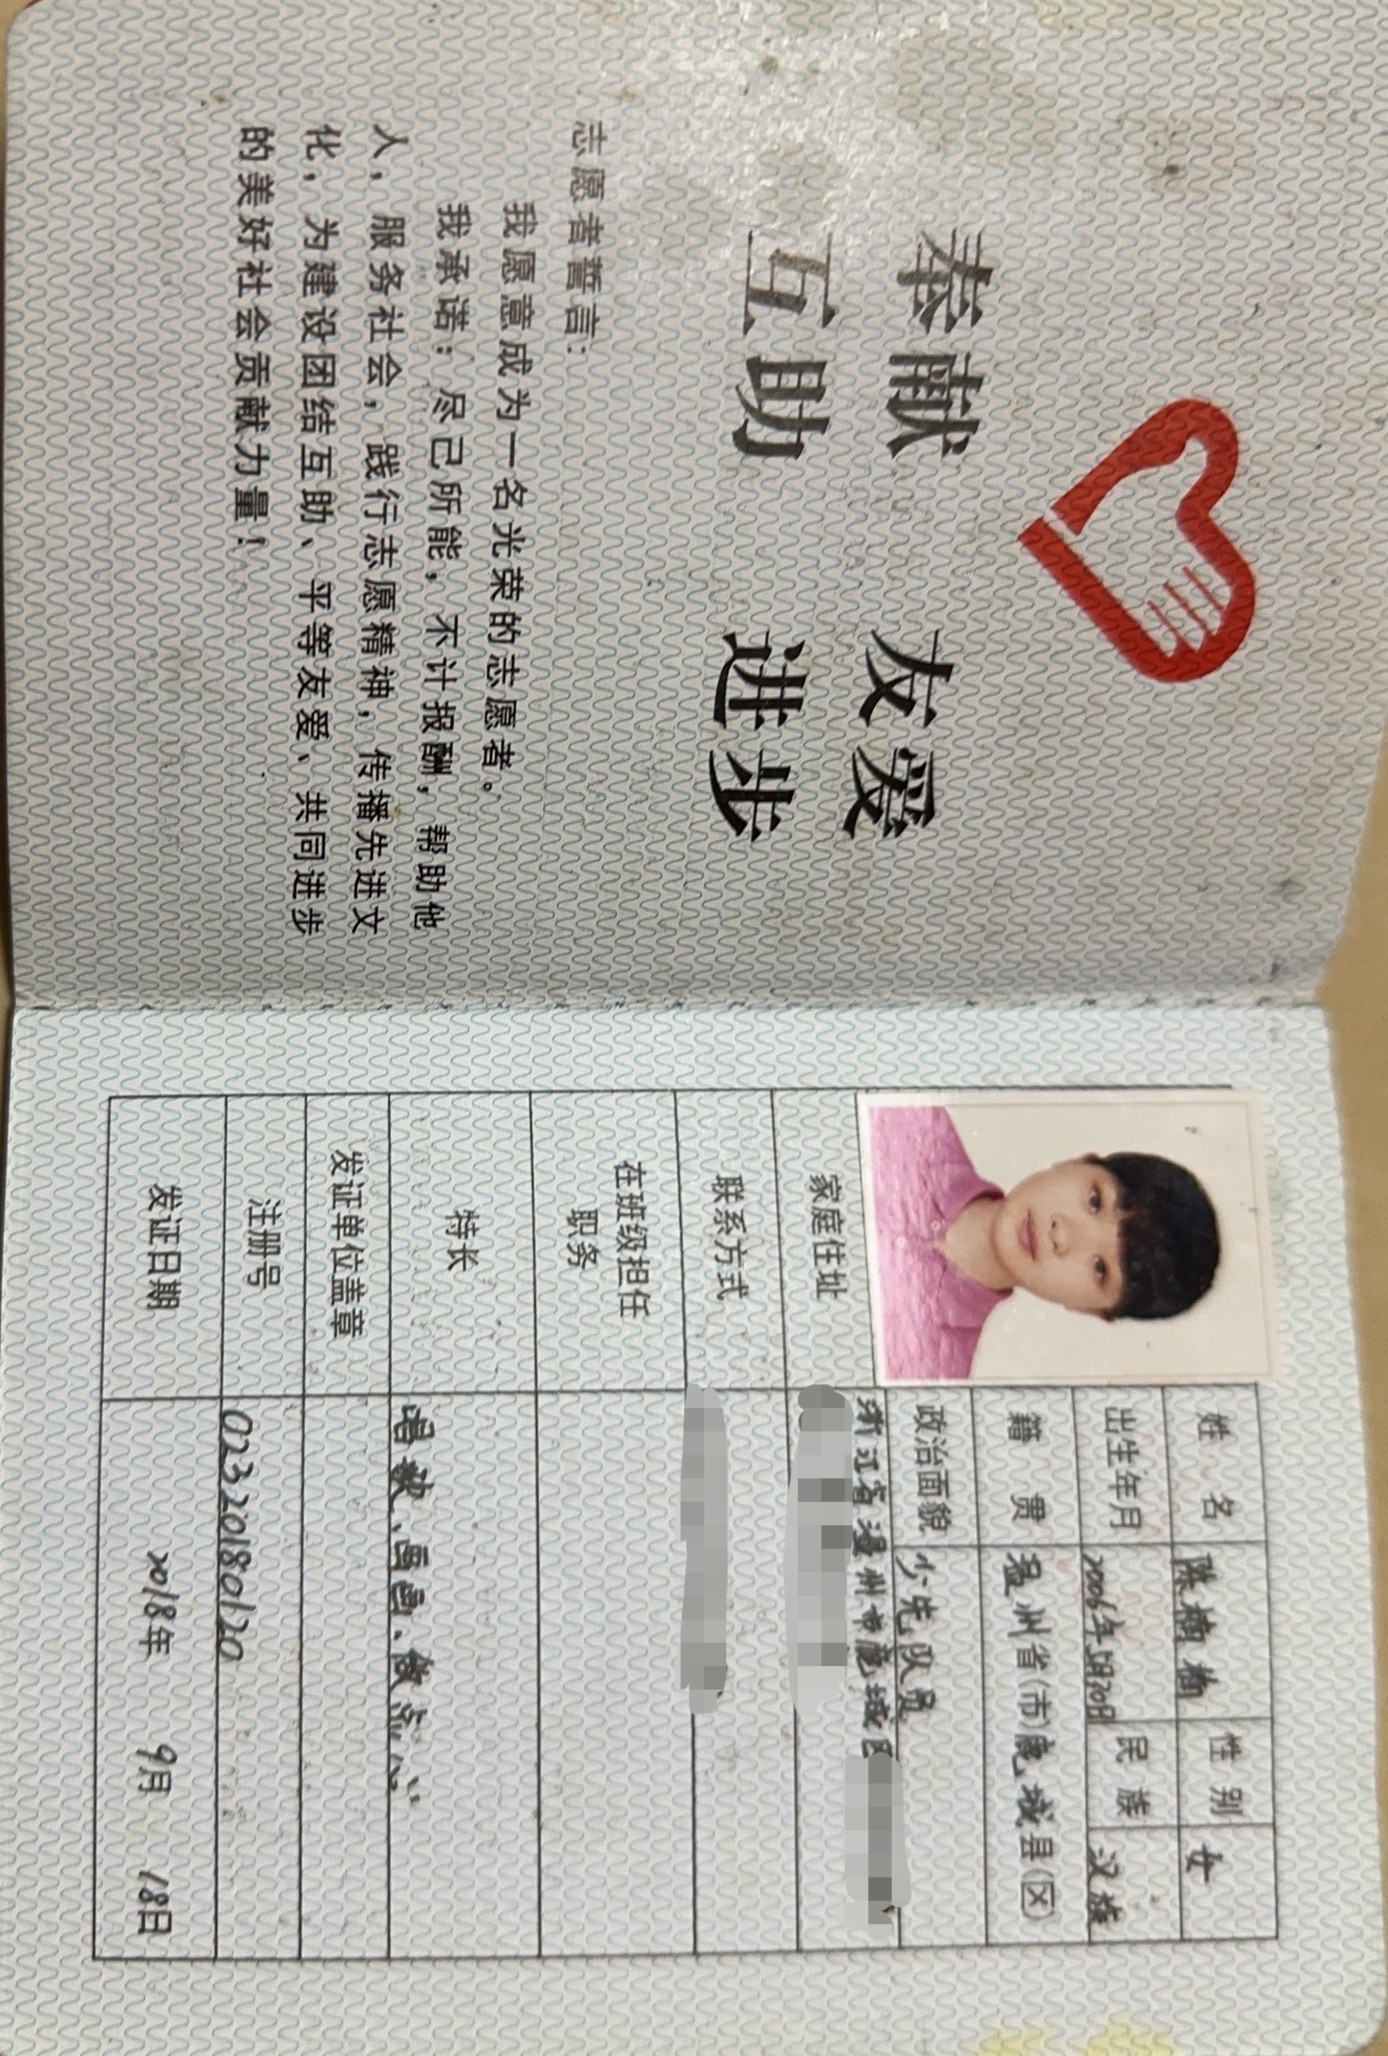 奉献 友爱
互助 进步
志愿者誓言：
我愿意成为一名光荣的志愿者。
我承诺：尽己所能，不计报酬，帮助他
人，服务社会，践行志愿精神，传播先进文
化，为建设团结互助、平等友爱、共同进步
的美好社会贡献力量！
姓名 陈楠楠 性别 女
出生年月 2006年 民族 汉族
籍贯 温州省(市)鹿城县(区)
政治面貌 少先队员
家庭住址 浙江省温州市鹿城区
联系方式
在班级担任
职务
特长 唱歌、画画、做点心
发证单位盖章
注册号 02320180120
发证日期 2018年 9月 18日